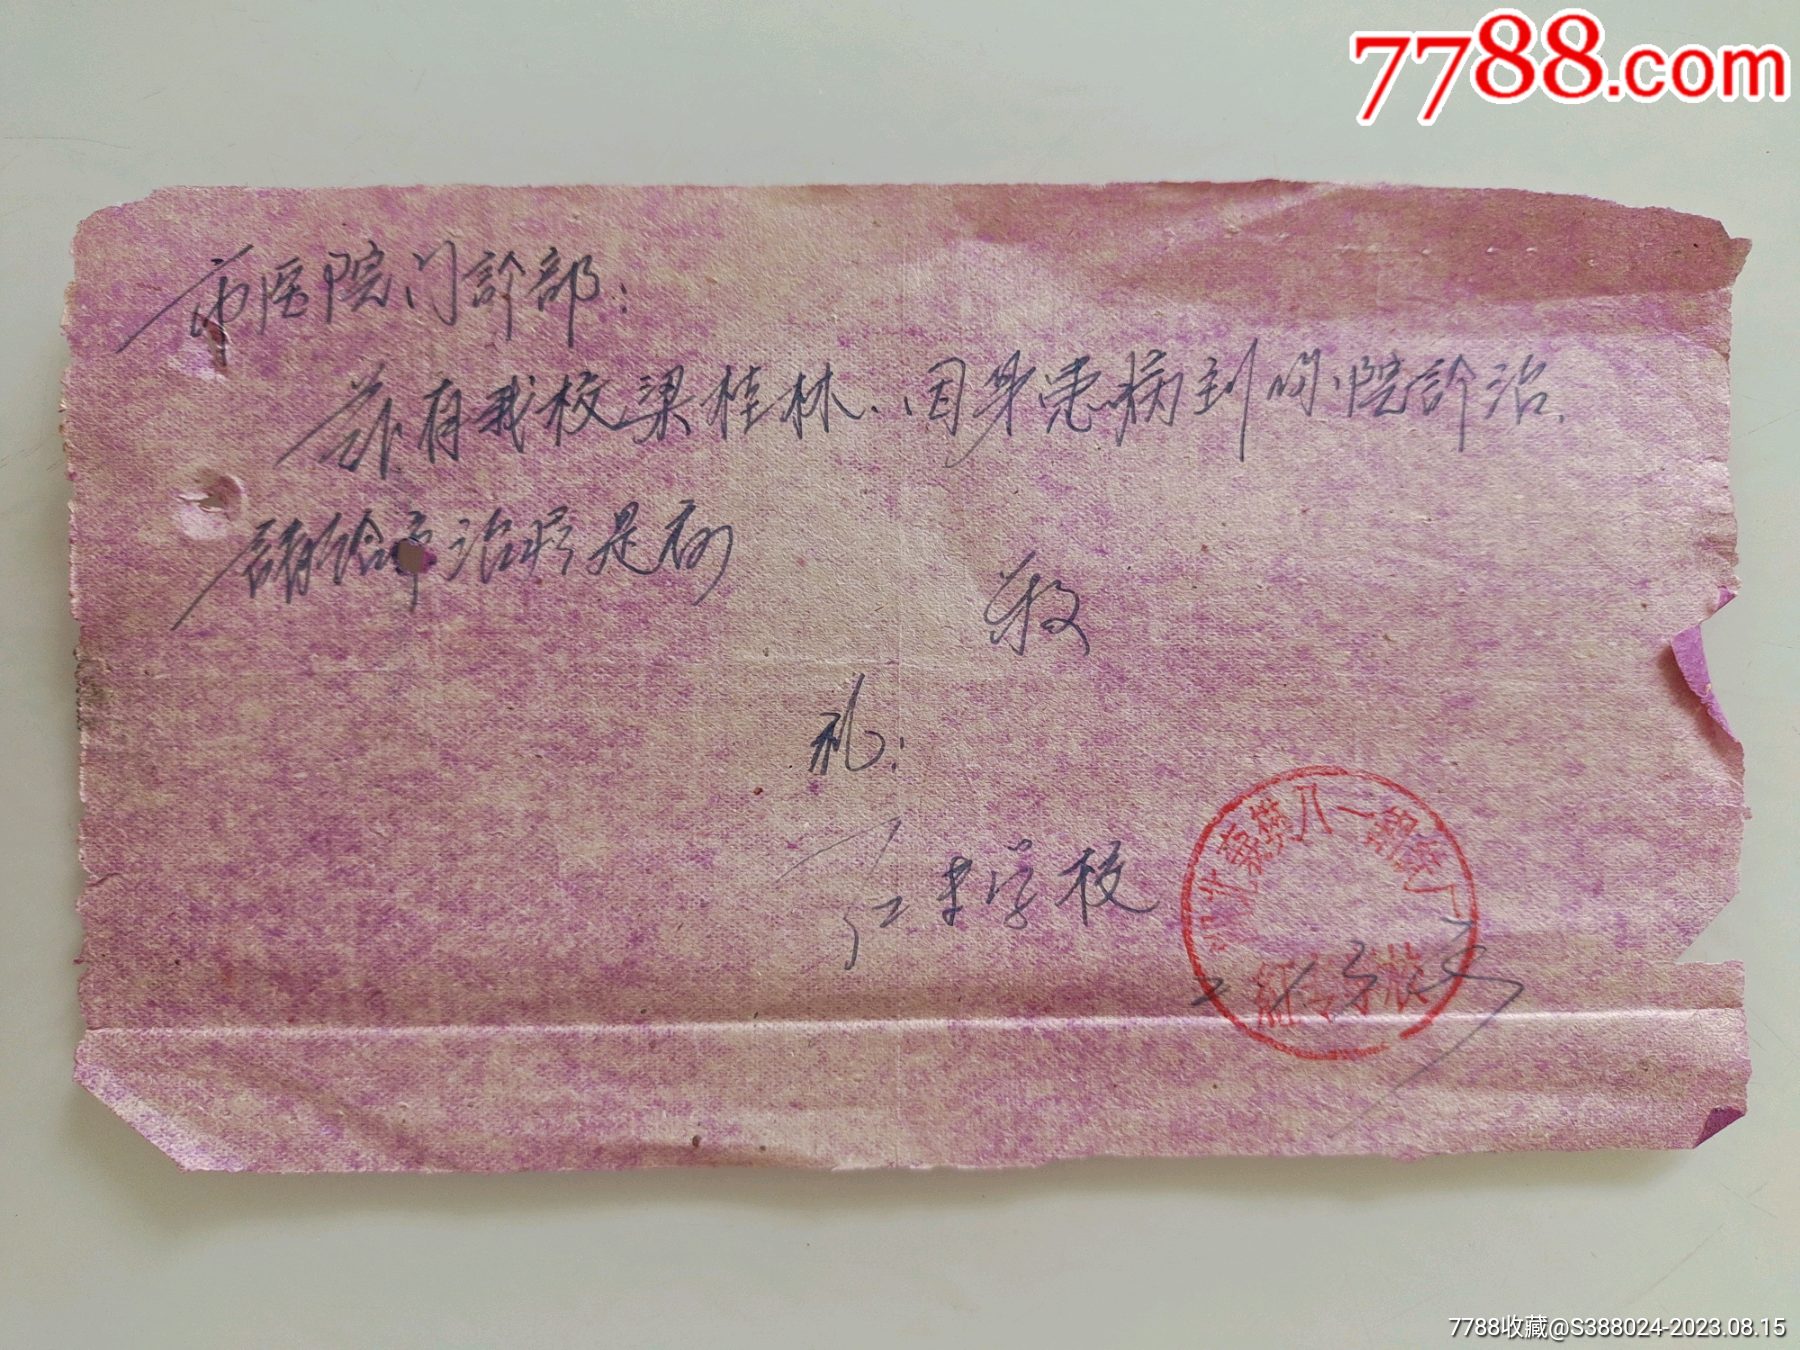 7788.com
市医院门診部：
兹有我校梁桂林.因身患病到你院診治.
請给予治疗是荷
敬
礼：
红专学校
湖北襄樊八一造纸厂
红专学校
7788收藏@S388024-2023.08.15